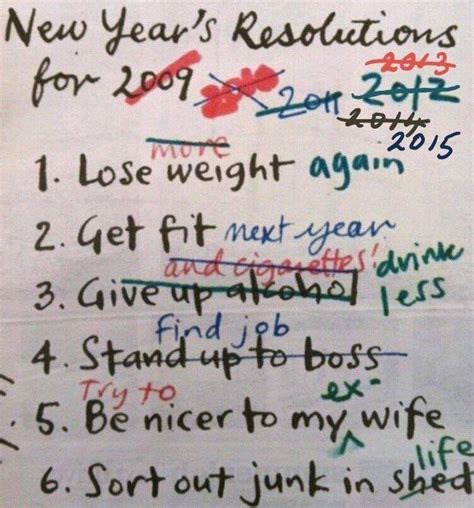 New Year's Resolutions
2013
for 2009 2011 2012
2014
2015
more
1. Lose weight again
2. Get fit next year
and cigarettes! drink
3. Give up alcohol less
find job
4. Stand up to boss
Try to ex-
5. Be nicer to my wife
life
6. Sort out junk in shed